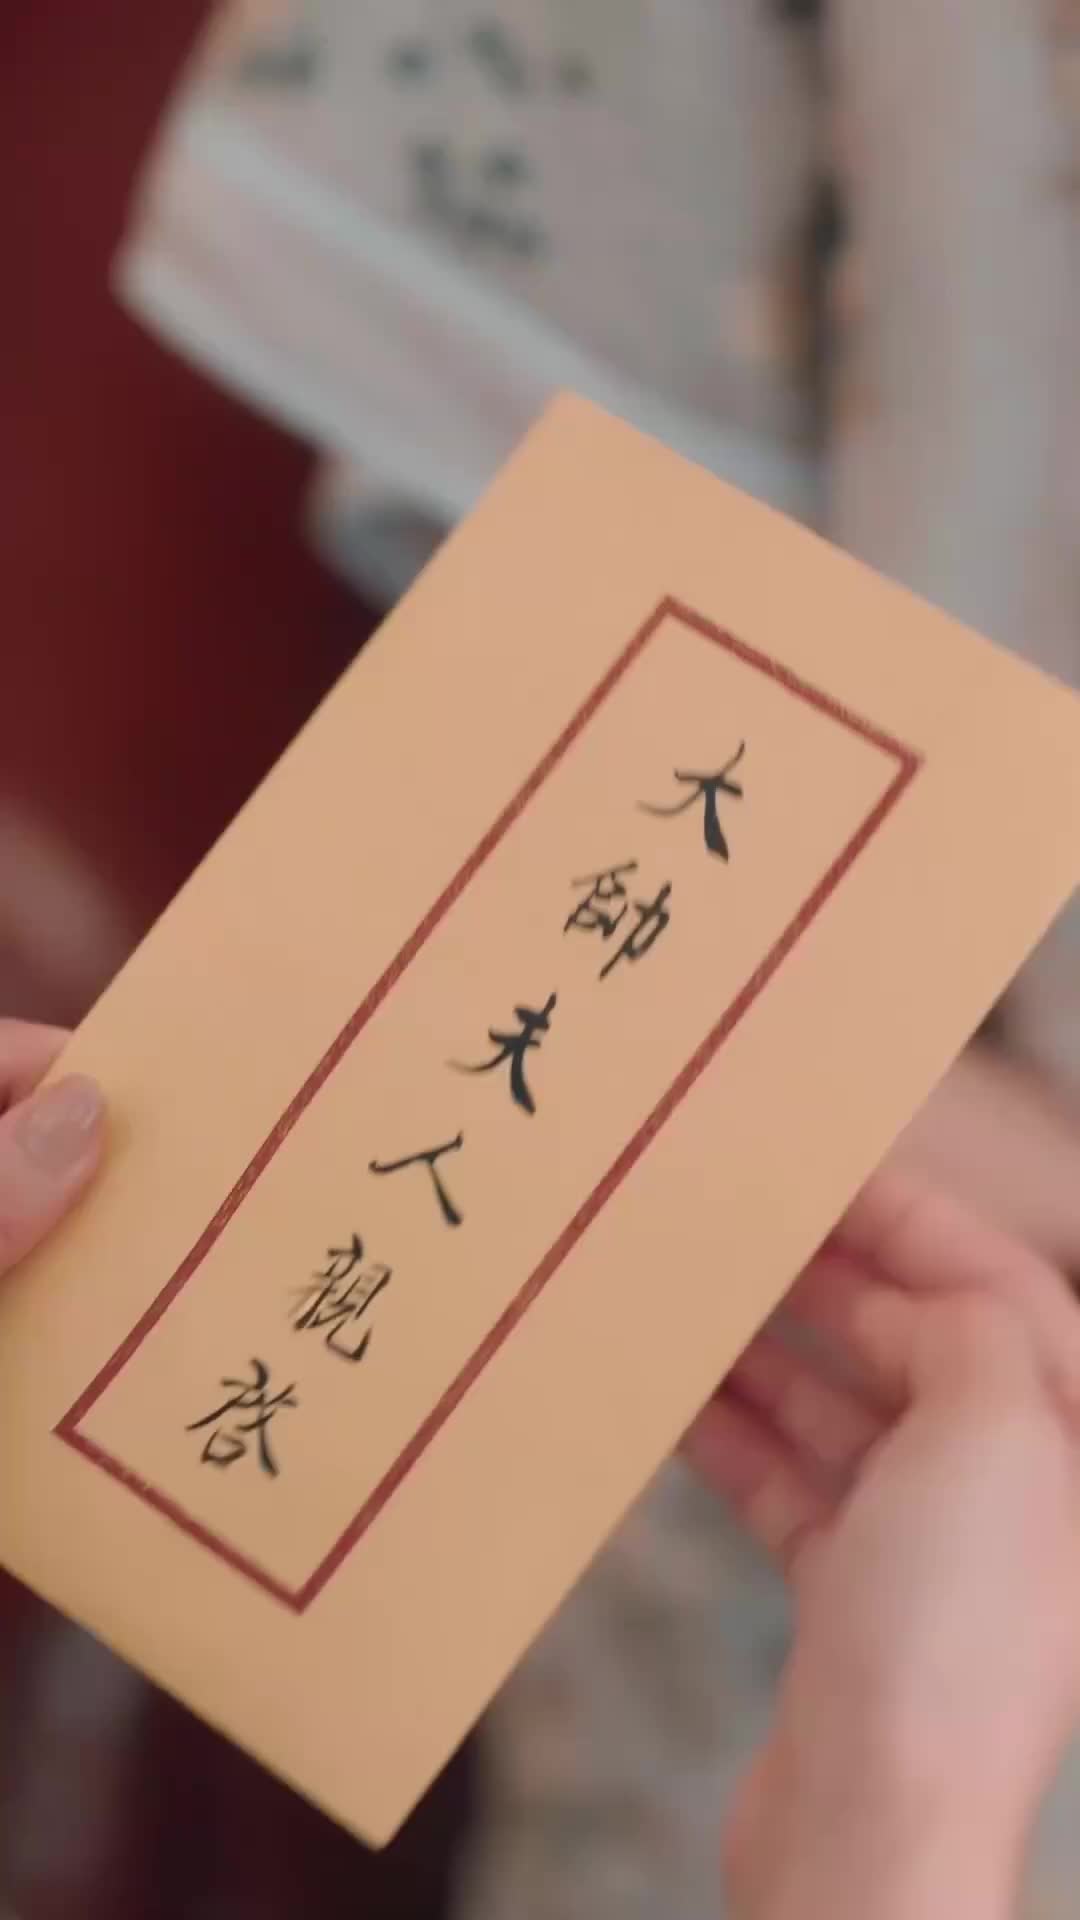 大帥夫人親啓